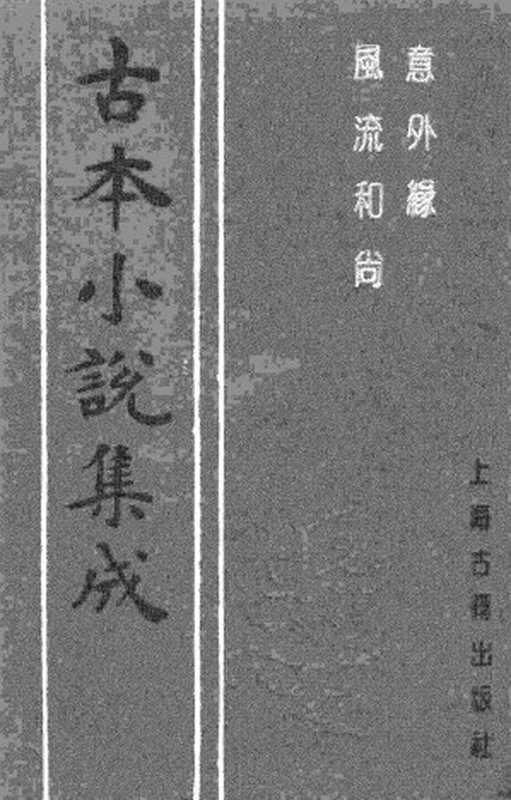 意外緣
風流和尚
上海古籍出版社
古本小說集成